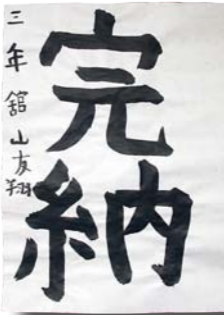 完納
三年 舘山友翔